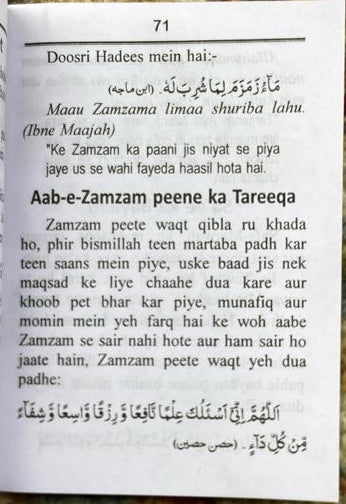 71
Doosri Hadees mein hai:-
مَآءُ زَمْزَمَ لِمَا شُرِبَ لَهٗ۔ (ابن ماجہ)
Maau Zamzama limaa shuriba lahu.
(Ibne Maajah)
"Ke Zamzam ka paani jis niyat se piya
jaye us se wahi fayeda haasil hota hai.
Aab-e-Zamzam peene ka Tareeqa
Zamzam peete waqt qibla ru khada
ho, phir bismillah teen martaba padh kar
teen saans mein piye, uske baad jis nek
maqsad ke liye chaahe dua kare aur
khoob pet bhar kar piye, munafiq aur
momin mein yeh farq hai ke woh aabe
Zamzam se sair nahi hote aur ham sair ho
jaate hain, Zamzam peete waqt yeh dua
padhe:
اَللّٰهُمَّ اِنِّیْ اَسْئَلُكَ عِلْمًا نَافِعًا وَّ رِزْقًا وَّاسِعًا وَّ شِفَآءً
مِّنْ كُلِّ دَآءٍ۔ (حصن حصین)